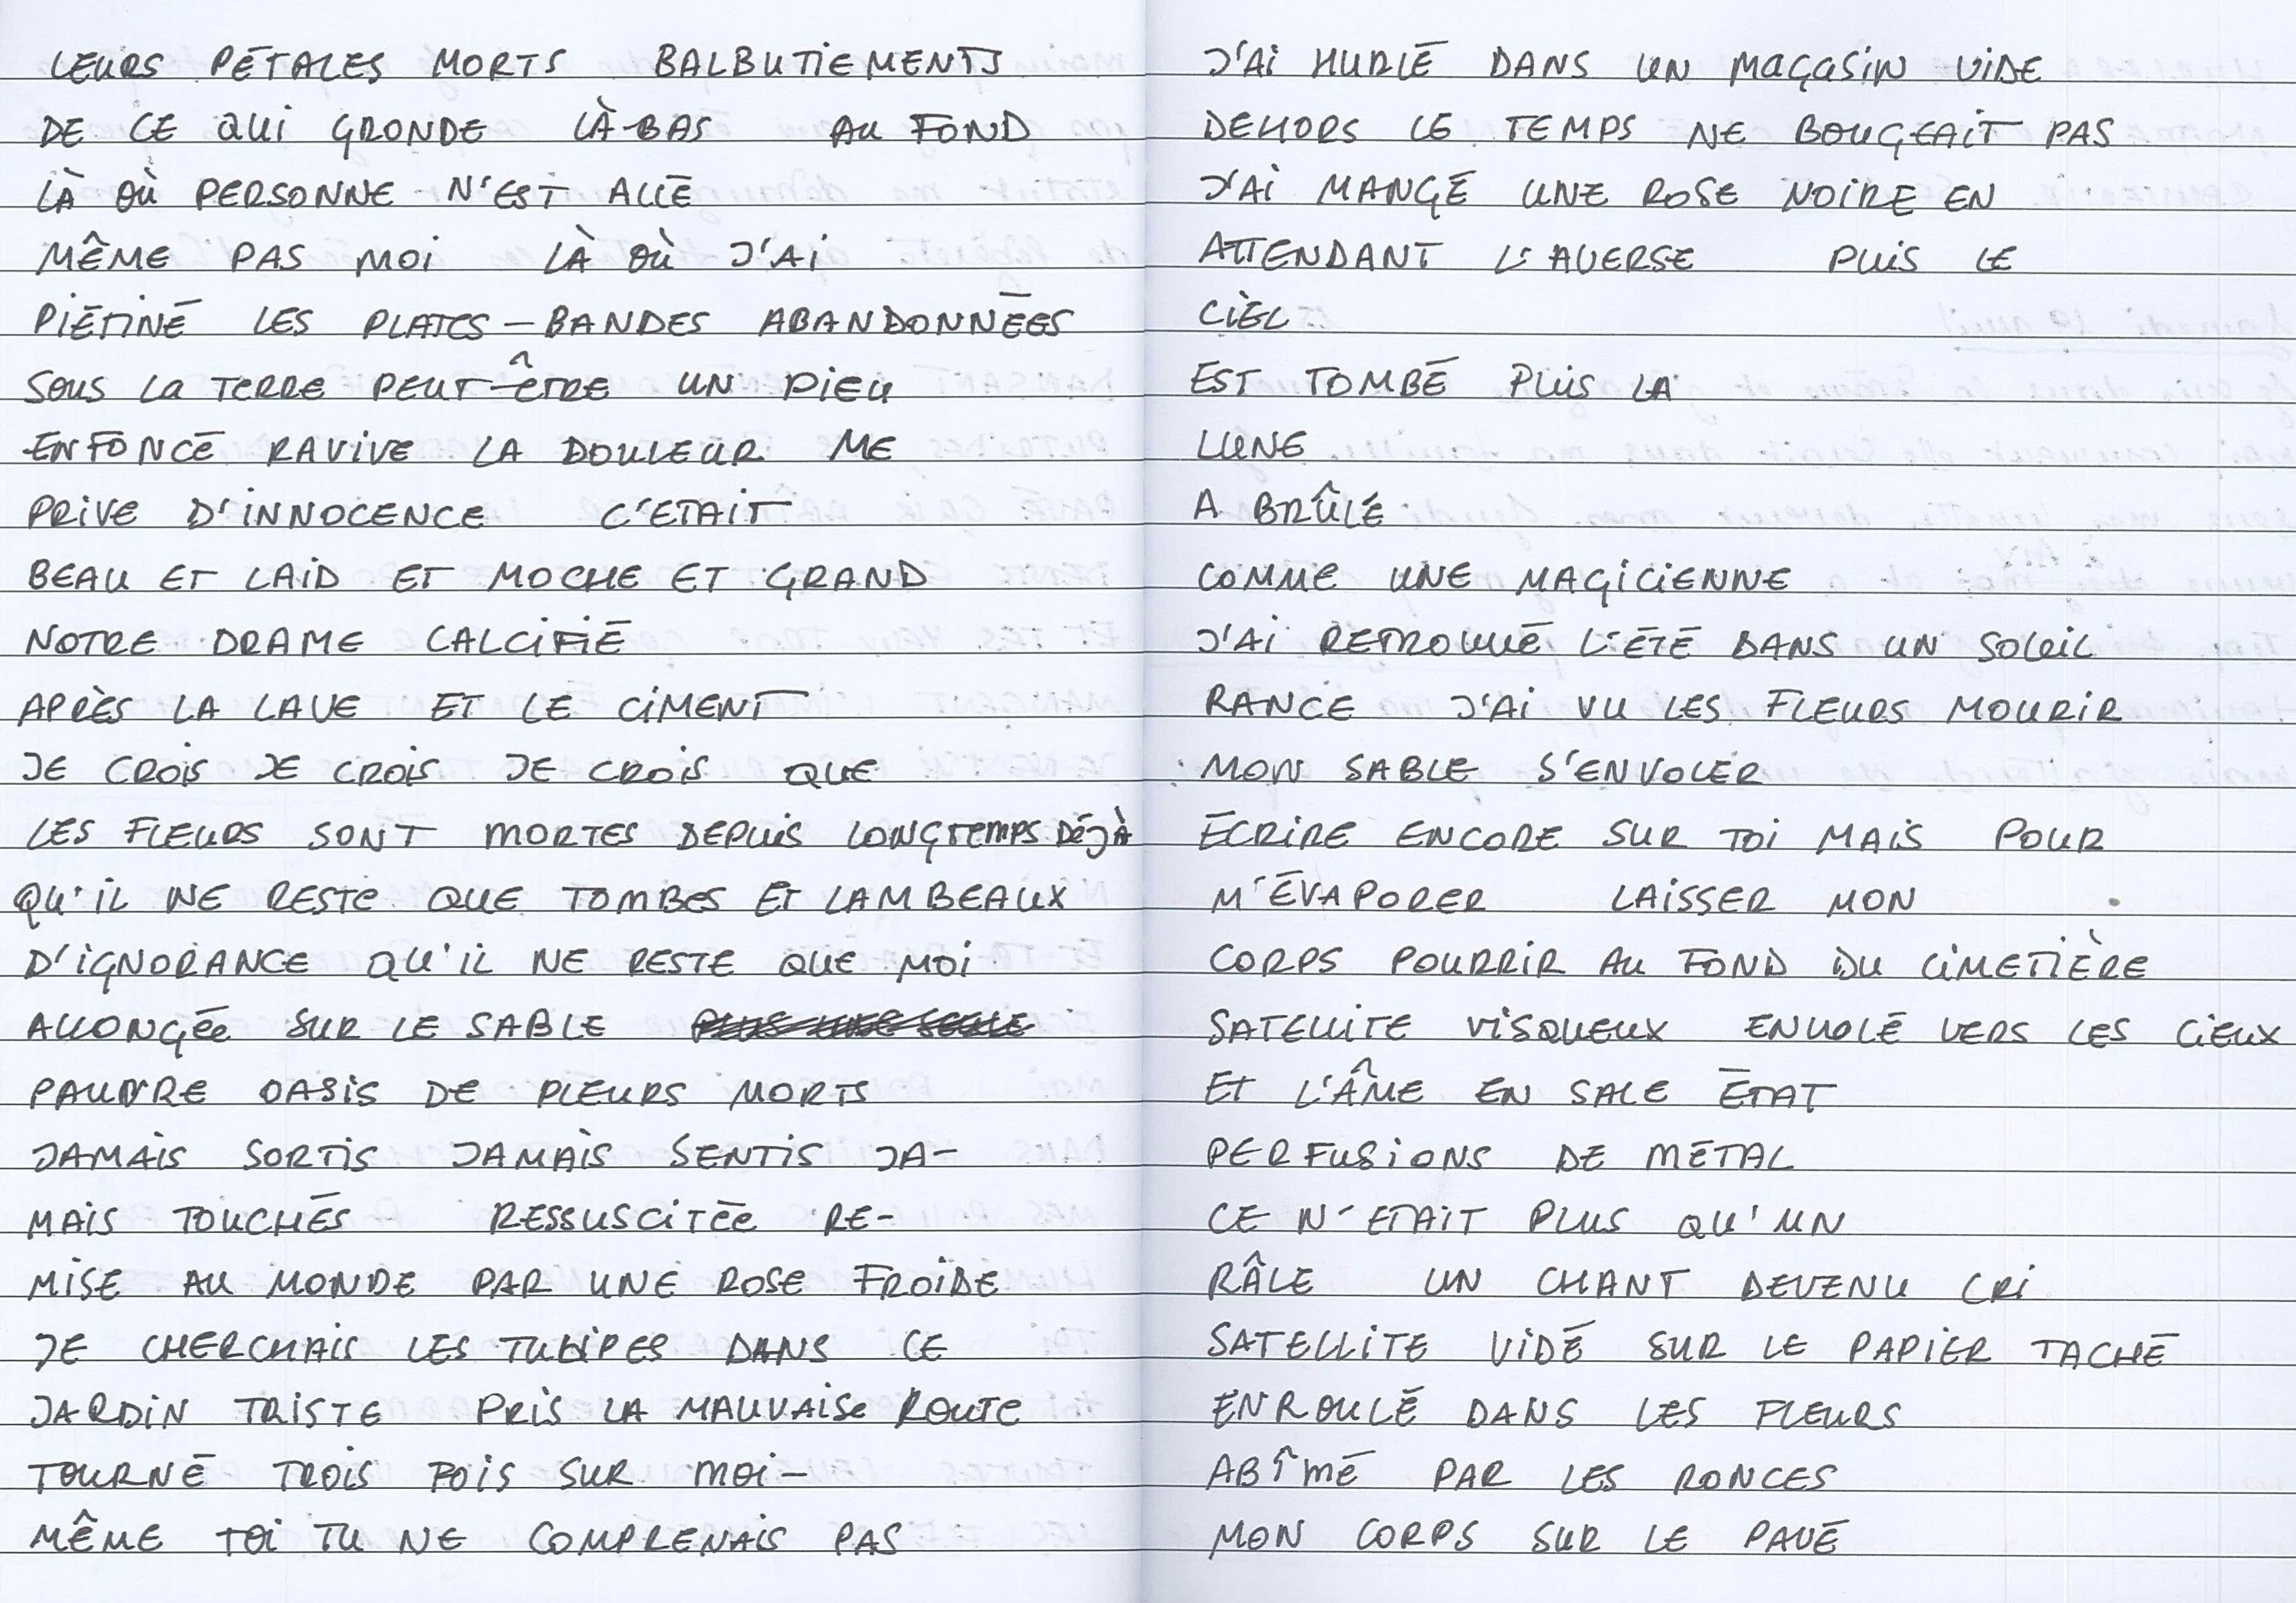 LEURS PÉTALES MORTS BALBUTIEMENTS
DE CE QUI GRONDE LÀ-BAS AU FOND
LÀ OÙ PERSONNE N'EST ALLÉ
MÊME PAS MOI LÀ OÙ J'AI
PIÉTINÉ LES PLATES-BANDES ABANDONNÉES
SOUS LA TERRE PEUT-ÊTRE UN PIEU
ENFONCÉ RAVIVE LA DOULEUR ME
PRIVE D'INNOCENCE C'ETAIT
BEAU ET LAID ET MOCHE ET GRAND
NOTRE DRAME CALCIFIÉ
APRÈS LA LAVE ET LE CIMENT
JE CROIS JE CROIS JE CROIS QUE
LES FLEURS SONT MORTES DEPUIS LONGTEMPS DÉJÀ
QU'IL NE RESTE QUE TOMBES ET LAMBEAUX
D'IGNORANCE QU'IL NE RESTE QUE MOI
ALLONGÉE SUR LE SABLE
PAUVRE OASIS DE PLEURS MORTS
JAMAIS SORTIS JAMAIS SENTIS JA-
MAIS TOUCHÉS RESSUSCITÉE RE-
MISE AU MONDE PAR UNE ROSE FROIDE
JE CHERCHAIS LES TULIPES DANS CE
JARDIN TRISTE PRIS LA MAUVAISE ROUTE
TOURNÉ TROIS FOIS SUR MOI-
MÊME TOI TU NE COMPRENAIS PAS
J'AI HURLÉ DANS UN MAGASIN VIDE
DEHORS LE TEMPS NE BOUGEAIT PAS
J'AI MANGÉ UNE ROSE NOIRE EN
ATTENDANT L'AVERSE PUIS LE
CIEL
EST TOMBÉ PUIS LA
LUNE
A BRÛLÉ
COMME UNE MAGICIENNE
J'AI RETROUVÉ L'ÉTÉ DANS UN SOLEIL
RANCE J'AI VU LES FLEURS MOURIR
MON SABLE S'ENVOLER
ÉCRIRE ENCORE SUR TOI MAIS POUR
M'ÉVAPORER LAISSER MON
CORPS POURRIR AU FOND DU CIMETIÈRE
SATELLITE VISQUEUX ENVOLÉ VERS LES CIEUX
ET L'ÂME EN SALE ÉTAT
PERFUSIONS DE METAL
CE N'ETAIT PLUS QU'UN
RÂLE UN CHANT DEVENU CRI
SATELLITE VIDÉ SUR LE PAPIER TACHÉ
ENROULÉ DANS LES FLEURS
ABÎMÉ PAR LES RONCES
MON CORPS SUR LE PAVÉ